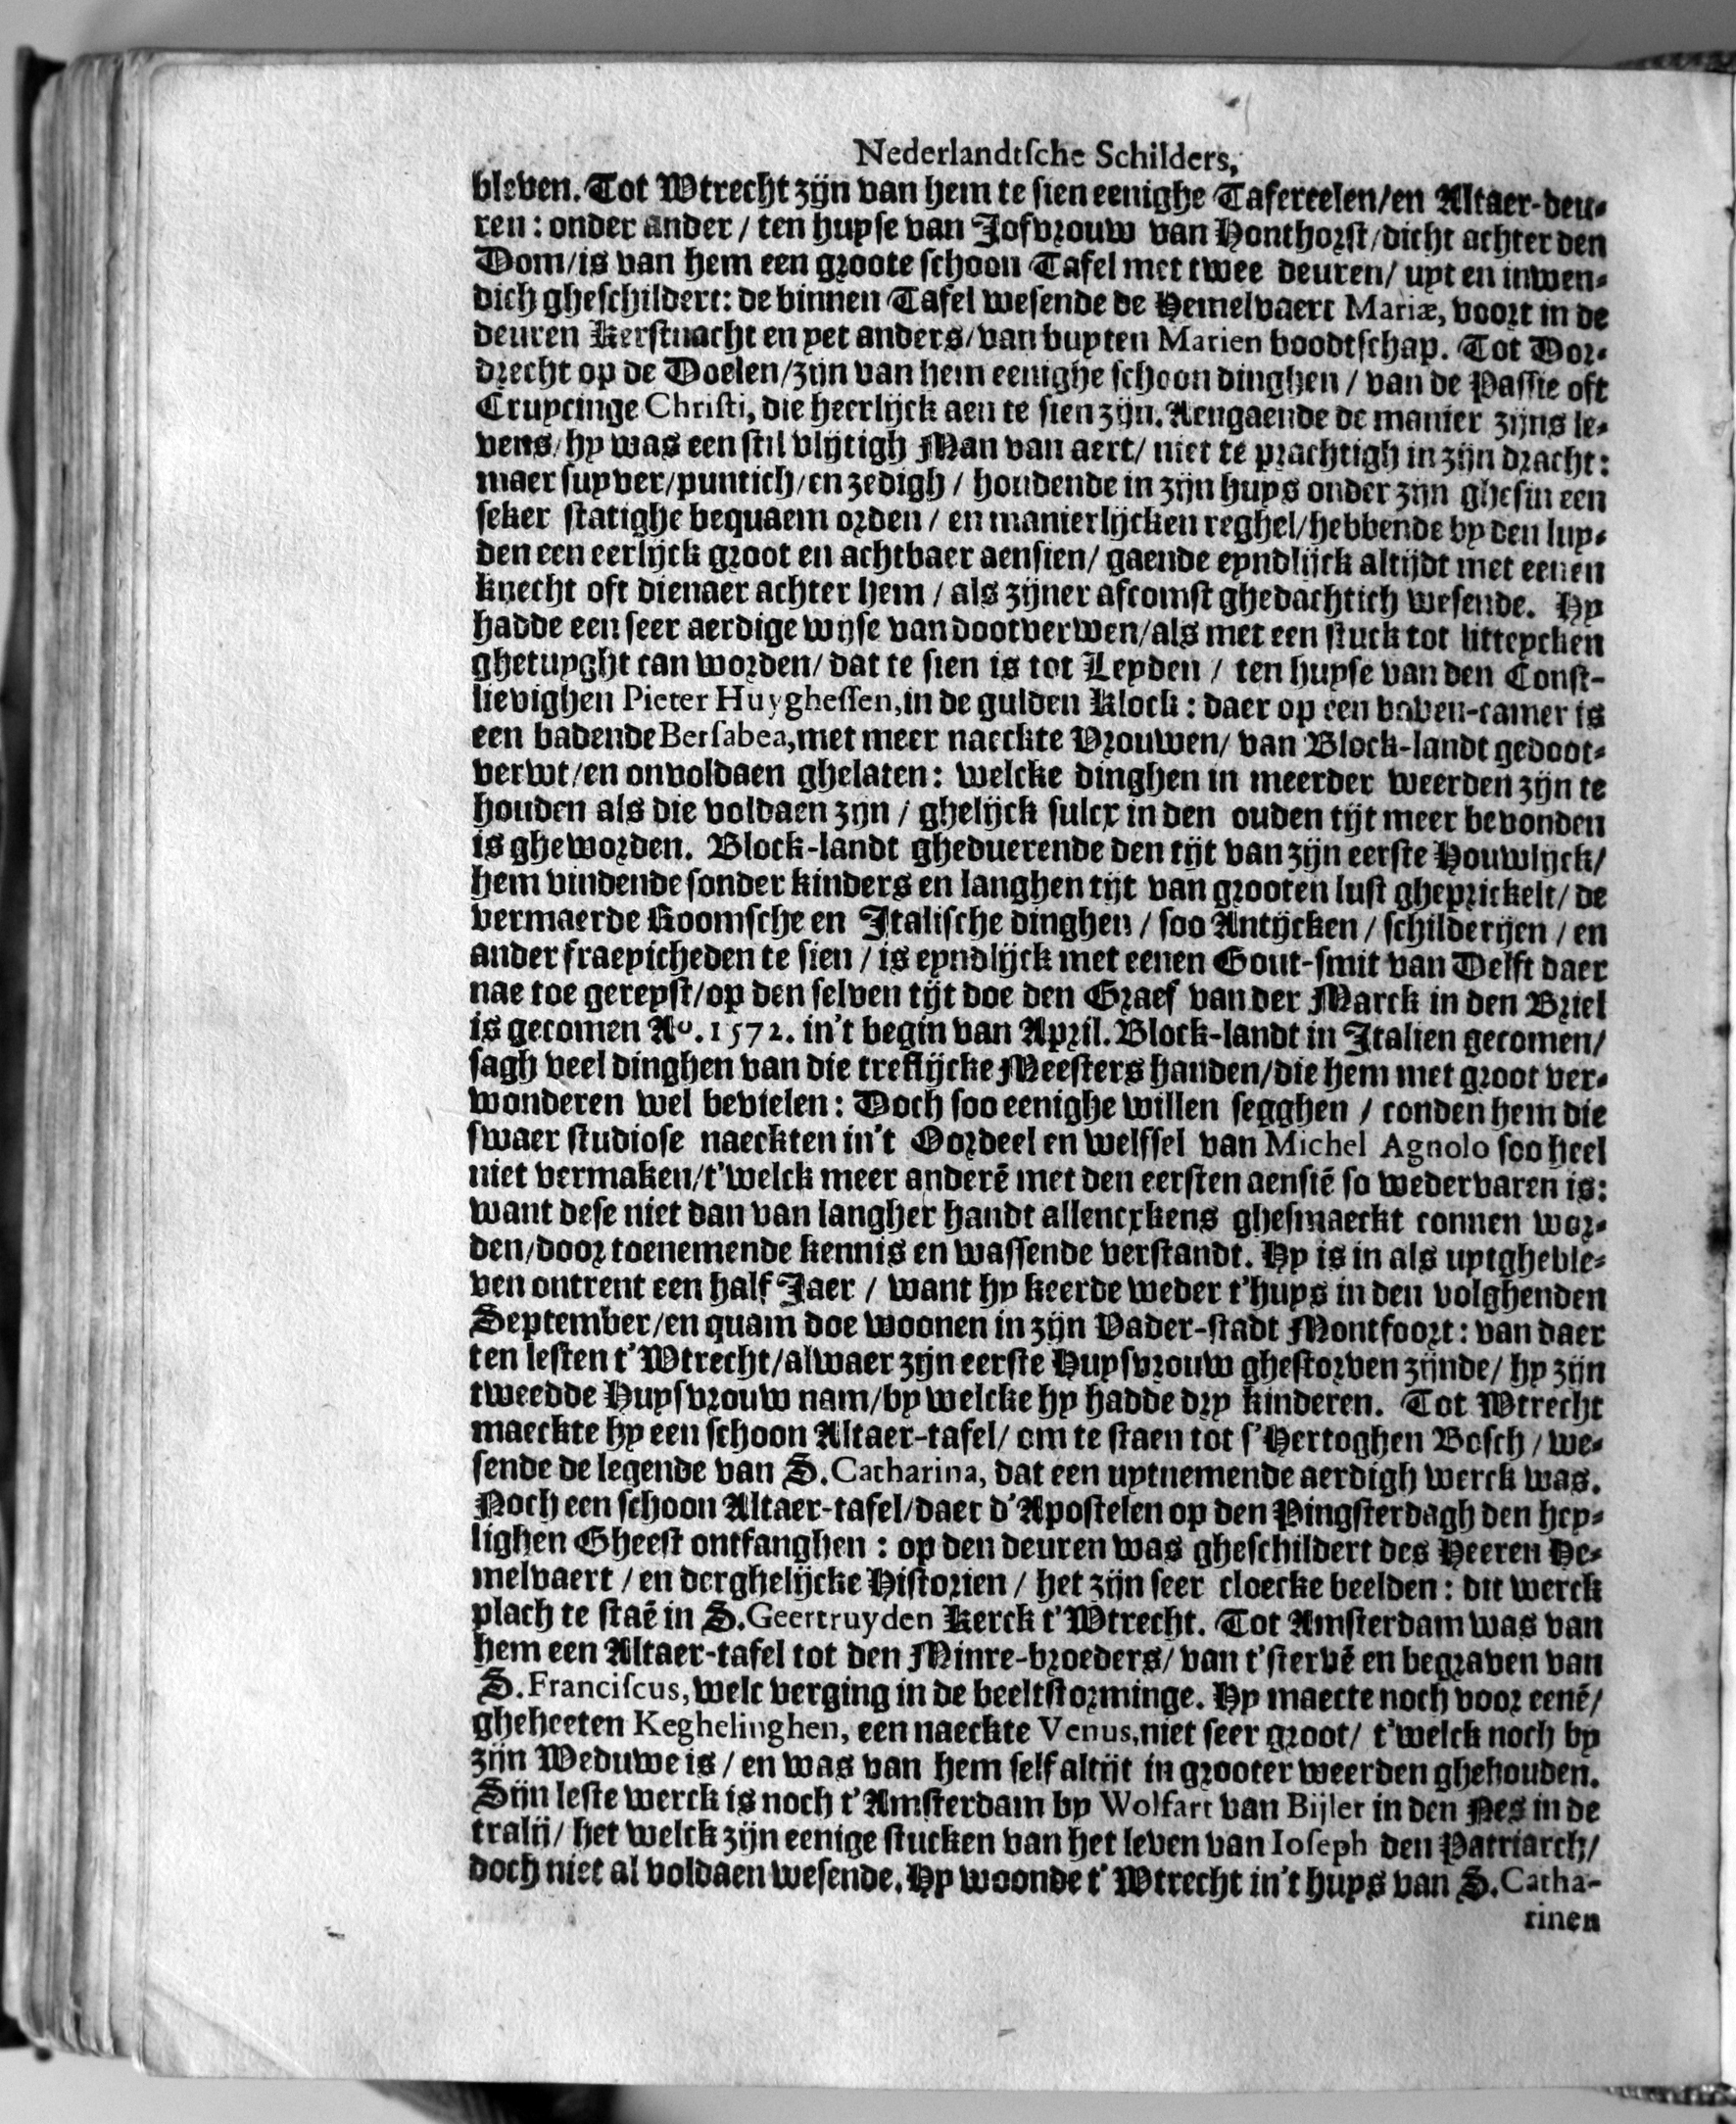 Nederlandtſche Schilders,
bleven. Tot Wtrecht zijn van hem te ſien eenighe Tafereelen/en Altaer-deu-
ren: onder ander / ten huyſe van Jofvrouw van Honthorſt/dicht achter den
Dom/is van hem een groote ſchoon Tafel met twee deuren/ uyt en inwen-
dich gheſchildert: de binnen Tafel weſende de Hemelvaert Mariæ, voort in de
deuren Kerſtnacht en yet anders/van buyten Marien boodtſchap. Tot Dor-
drecht op de Doelen/zijn van hem eenighe ſchoon dinghen / van de Paſſie oft
Cruycinge Chriſti, die heerlijck aen te ſien zijn. Aengaende de manier zijns le-
vens/hy was een ſtil vlijtigh Man van aert/ niet te prachtigh in zijn dracht:
maer ſuyver/puntich/en zedigh / houdende in zijn huys onder zijn gheſin een
ſeker ſtatighe bequaem orden / en manierlijcken reghel/hebbende by den luy-
den een eerlijck groot en achtbaer aenſien/ gaende eyndlijck altijdt met eenen
knecht oft dienaer achter hem / als zijner afcomſt ghedachtich weſende. Hy
hadde een ſeer aerdige wijſe van dootverwen/als met een ſtuck tot litteycken
ghetuyght can worden/ dat te ſien is tot Leyden / ten huyſe van den Conſt-
lievighen Pieter Huygheſſen,in de gulden Klock: daer op een boven-camer is
een badende Berſabea,met meer naeckte Vrouwen/ van Block-landt gedoot-
verwt/en onvoldaen ghelaten: welcke dinghen in meerder weerden zijn te
houden als die voldaen zijn / ghelijck ſulcx in den ouden tijt meer bevonden
is gheworden. Block-landt gheduerende den tijt van zijn eerſte Houwlijck/
hem vindende ſonder kinders en langhen tijt van grooten luſt gheprickelt/ de
vermaerde Roomſche en Italiſche dinghen / ſoo Antijcken / ſchilderijen / en
ander fraeyicheden te ſien / is eyndlijck met eenen Gout-ſmit van Delft daer
nae toe gereyſt/op den ſelven tijt doe den Graef van der Marck in den Briel
is gecomen Aº. 1572. in't begin van April. Block-landt in Italien gecomen/
ſagh veel dinghen van die treflijcke Meeſters handen/die hem met groot ver-
wonderen wel bevielen: Doch ſoo eenighe willen ſegghen / conden hem die
ſwaer ſtudioſe naeckten in't Oordeel en welfſel van Michel Agnolo ſoo heel
niet vermaken/t'welck meer anderē met den eerſten aenſiē ſo wedervaren is:
want deſe niet dan van langher handt allencxkens gheſmaeckt connen wor-
den/door toenemende kennis en waſſende verſtandt. Hy is in als uytgheble-
ven ontrent een half Jaer / want hy keerde weder t'huys in den volghenden
September/en quam doe woonen in zijn Vader-ſtadt Montfoort: van daer
ten leſten t'Wtrecht/alwaer zijn eerſte Huyſvrouw gheſtorven zijnde/ hy zijn
tweedde Huyſvrouw nam/by welcke hy hadde dry kinderen. Tot Wtrecht
maeckte hy een ſchoon Altaer-tafel/ om te ſtaen tot ſ'Hertoghen Boſch / we-
ſende de legende van S. Catharina, dat een uytnemende aerdigh werck was.
Noch een ſchoon Altaer-tafel/daer d'Apoſtelen op den Pingſterdagh den hey-
lighen Gheeſt ontfanghen: op den deuren was gheſchildert des Heeren He-
melvaert / en derghelijcke Hiſtorien / het zijn ſeer cloecke beelden: dit werck
plach te ſtaē in S. Geertruyden Kerck t'Wtrecht. Tot Amſterdam was van
hem een Altaer-tafel tot den Minre-broeders/ van t'ſtervē en begraven van
S. Franciſcus, welc verging in de beeltſtorminge. Hy maecte noch voor eenē/
gheheeten Keghelinghen, een naeckte Venus,niet ſeer groot/ t'welck noch by
zijn Weduwe is / en was van hem ſelf altijt in grooter weerden ghehouden.
Sijn leſte werck is noch t'Amſterdam by Wolfart van Bijler in den Nes in de
tralij/ het welck zijn eenige ſtucken van het leven van Ioſeph den Patriarch/
doch niet al voldaen weſende. Hy woonde t'Wtrecht in't huys van S. Catha-
rinen